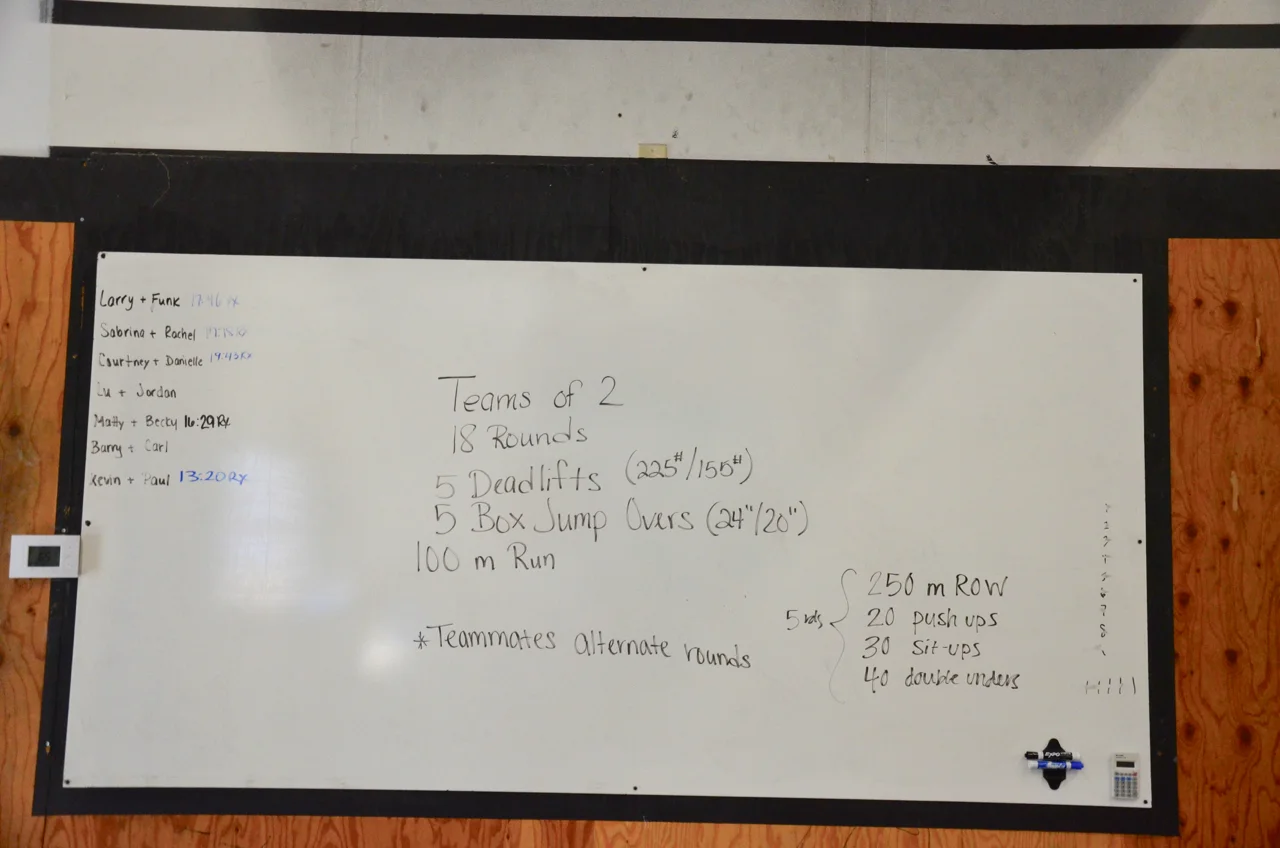 Larry + Funk 17:46 Rx
Sabrina + Rachel
Courtney + Danielle 14:43 Rx
Lu + Jordan
Matty + Becky 16:29 Rx
Barry + Carl
Kevin + Paul 13:20 Rx
Teams of 2
18 Rounds
5 Deadlifts (225#/155#)
5 Box Jump Overs (24"/20")
100 m Run
*Teammates alternate rounds
5 rds
250 m Row
20 push ups
30 sit-ups
40 double unders
EXPO